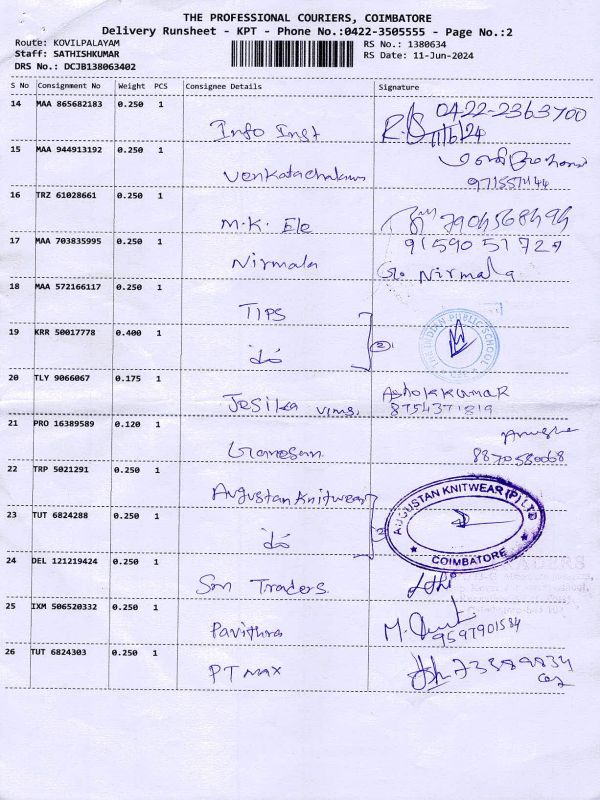 THE PROFESSIONAL COURIERS, COIMBATORE
Delivery Runsheet - KPT - Phone No.:0422-3505555 - Page No.:2
Route: KOVILPALAYAM
Staff: SATHISHKUMAR
DRS No.: DCJB138063402
RS No.: 1380634
RS Date: 11-Jun-2024
S No Consignment No Weight PCS Consignee Details Signature
14 MAA 865682183 0.250 1
Info Inst 0422-2363700
11/6/24
15 MAA 944913192 0.250 1
Venkatachalam
16 TRZ 61028661 0.250 1
M.K. Ele
17 MAA 703835995 0.250 1
Nirmala Nirmala
18 MAA 572166117 0.250 1
TIPS
THE INDIAN PUBLIC SCHOOL
19 KRR 50017778 0.400 1
do (2)
20 TLY 9066067 0.175 1
Jesika Ashokkumar
8754371819
21 PRO 16389589 0.120 1
Ganesan
8870580068
22 TRP 5021291 0.250 1
Augustan Knitwear
AUGUSTAN KNITWEAR (P) LTD
COIMBATORE
23 TUT 6824288 0.250 1
do
24 DEL 121219424 0.250 1
Traders
25 IXM 506520332 0.250 1
Pavithra
9597901584
26 TUT 6824303 0.250 1
PT MAX